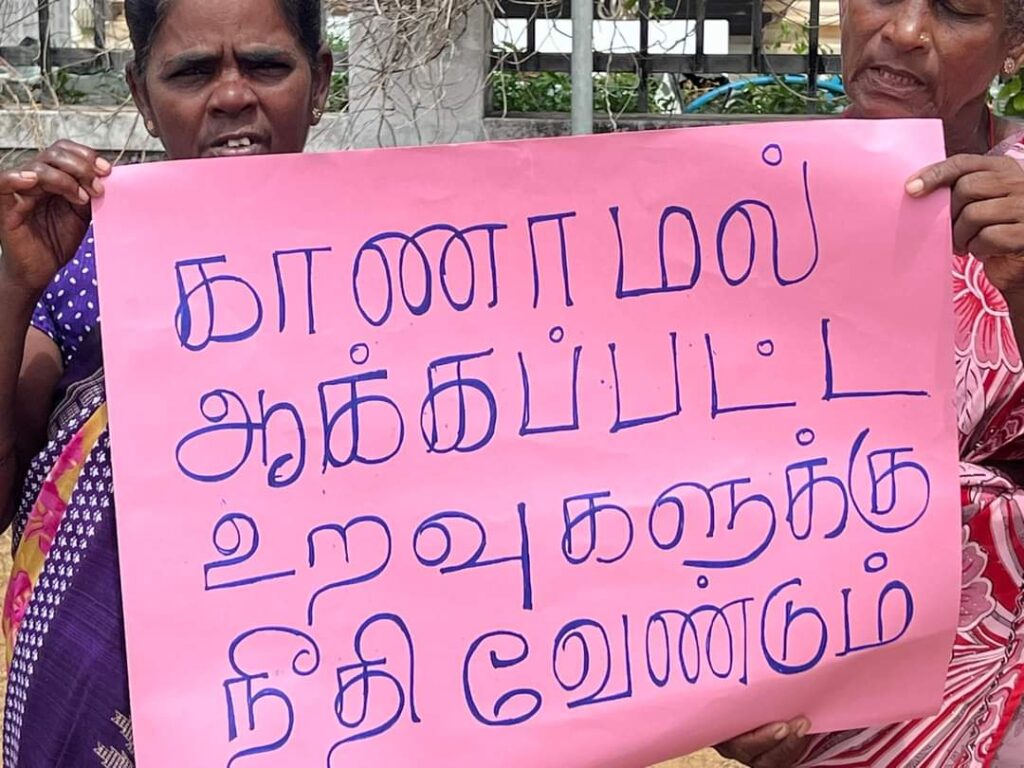 காணாமல்
ஆக்கப்பட்ட
உறவுகளுக்கு
நீதி வேண்டும்